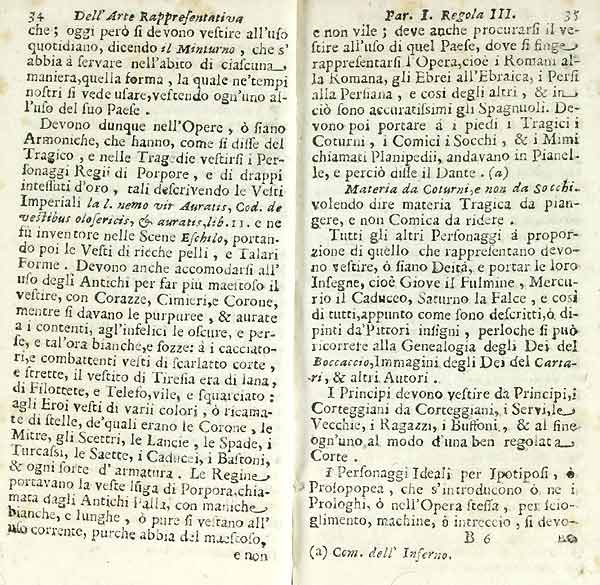 34 Dell'Arte Rappresentativa
che; oggi però si devono vestire all'uso
quotidiano, dicendo il Minturno, che s'
abbia á servare nell'abito di ciascuna
maniera, quella forma, la quale ne'tempi
nostri si vede usare, vestendo ogn'uno al-
l'uso del suo Paese.
Devono dunque nell'Opere, ò siano
Armoniche, che hanno, come si disse del
Tragico, e nelle Tragedie vestirsi i Per-
sonaggi Regii di Porpore, e di drappi
intessuti d'oro, tali descrivendo le Vesti
Imperiali la l. nemo vir Auratis, Cod. de
vestibus olosericis, & auratis, lib. 11. e ne
fù inventore nelle Scene Eschilo, portan-
do poi le Vesti di ricche pelli, e Talari
Forme. Devono anche accomodarsi all'
uso degli Antichi per far più maestoso il
vestire, con Corazze, Cimieri, e Corone,
mentre si davano le purpuree, & aurate
a i contenti, agl'infelici le oscure, e per-
se, e tal'ora bianche, e sozze: á i cacciato-
ri, e combattenti vesti di scarlatto corte,
e strette, il vestito di Tiresia era di lana,
di Filottete, e Telefo, vile, e squarciato:
agli Eroi vesti di varii colori, ò ricama-
te di stelle, de'quali erano le Corone, le
Mitre, gli Scettri, le Lancie, le Spade, i
Turcassi, le Saette, i Caducei, i Bastoni,
& ogni sorte d'armatura. Le Regine
portavano la veste lunga di Porpora, chia-
mata dagli Antichi Palla, con maniche
bianche, e lunghe, ò pure si vestano all'
uso corrente, purche abbia del maestoso,
e non
Par. I. Regola III. 35
e non vile; deve anche procurarsi il ve-
stire all'uso di quel Paese, dove si finge
rappresentarsi l'Opera, cioè i Romani al-
la Romana, gli Ebrei all'Ebraica, i Persi
alla Persiana, e così degli altri, & in
ciò sono accuratissimi gli Spagnuoli. De-
vono poi portare á i piedi i Tragici i
Coturni, i Comici i Socchi, & i Mimi
chiamati Planipedii, andavano in Pianel-
le, e perciò disse il Dante. (a)
Materia da Coturni, e non da Socchi.
volendo dire materia Tragica da pian-
gere, e non Comica da ridere.
Tutti gli altri Personaggi à propor-
zione di quello che rappresentano devo-
no vestire, ò siano Deità, e portar le loro
Insegne, cioè Giove il Fulmine, Mercu-
rio il Caduceo, Saturno la Falce, e così
di tutti, appunto come sono descritti, ò di-
pinti da'Pittori insigni, perloche si può
ricorrere alla Genealogia degli Dei del
Boccaccio, Immagini degli Dei del Carta-
ri, & altri Autori.
I Principi devono vestire da Principi, i
Corteggiani da Corteggiani, i Servi, le
Vecchie, i Ragazzi, i Buffoni, & al fine
ogn'uno al modo d'una ben regolata
Corte.
I Personaggi Ideali per Ipotiposi, ò
Prosopopea, che s'introducono ò ne i
Prologhi, ò nell'Opera stessa, per scio-
glimento, machine, ò intreccio, si devo-
B 6 no
(a) Com. dell'Inferno.